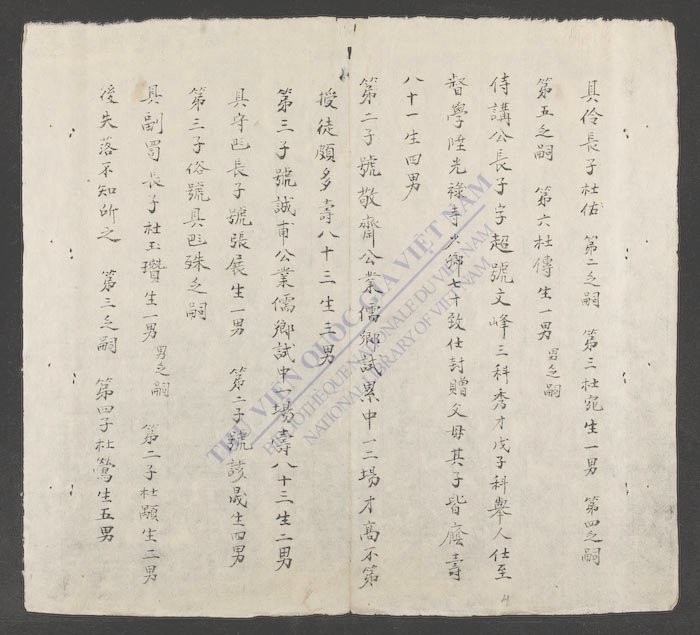 具伶長子杜佑 第二乏嗣 第三杜宛生一男 第四乏嗣
第五乏嗣 第六杜傳生一男 男乏嗣
侍講公長子字超號文峰三科秀才戊子科舉人仕至
督學陞光祿寺少卿七十致仕封贈父母其子皆廕壽
八十一生四男
第二子號敬齋公業儒鄉試累中一二場才高不第
授徒頗多壽八十三生三男
第三子號誠甫公業儒鄉試中一場壽八十三生二男
具守 長子號張展生一男 第二子號該晟生四男
第三子俗號具 殊乏嗣
具副蜀長子杜玉瓚生一男 男乏嗣 第二子杜顯生二男
後失落不知所之 第三乏嗣 第四子杜鶯生五男
THƯ VIỆN QUỐC GIA VIỆT NAM
BIBLIOTHEQUE NATIONALE DU VIETNAM
NATIONAL LIBRARY OF VIETNAM